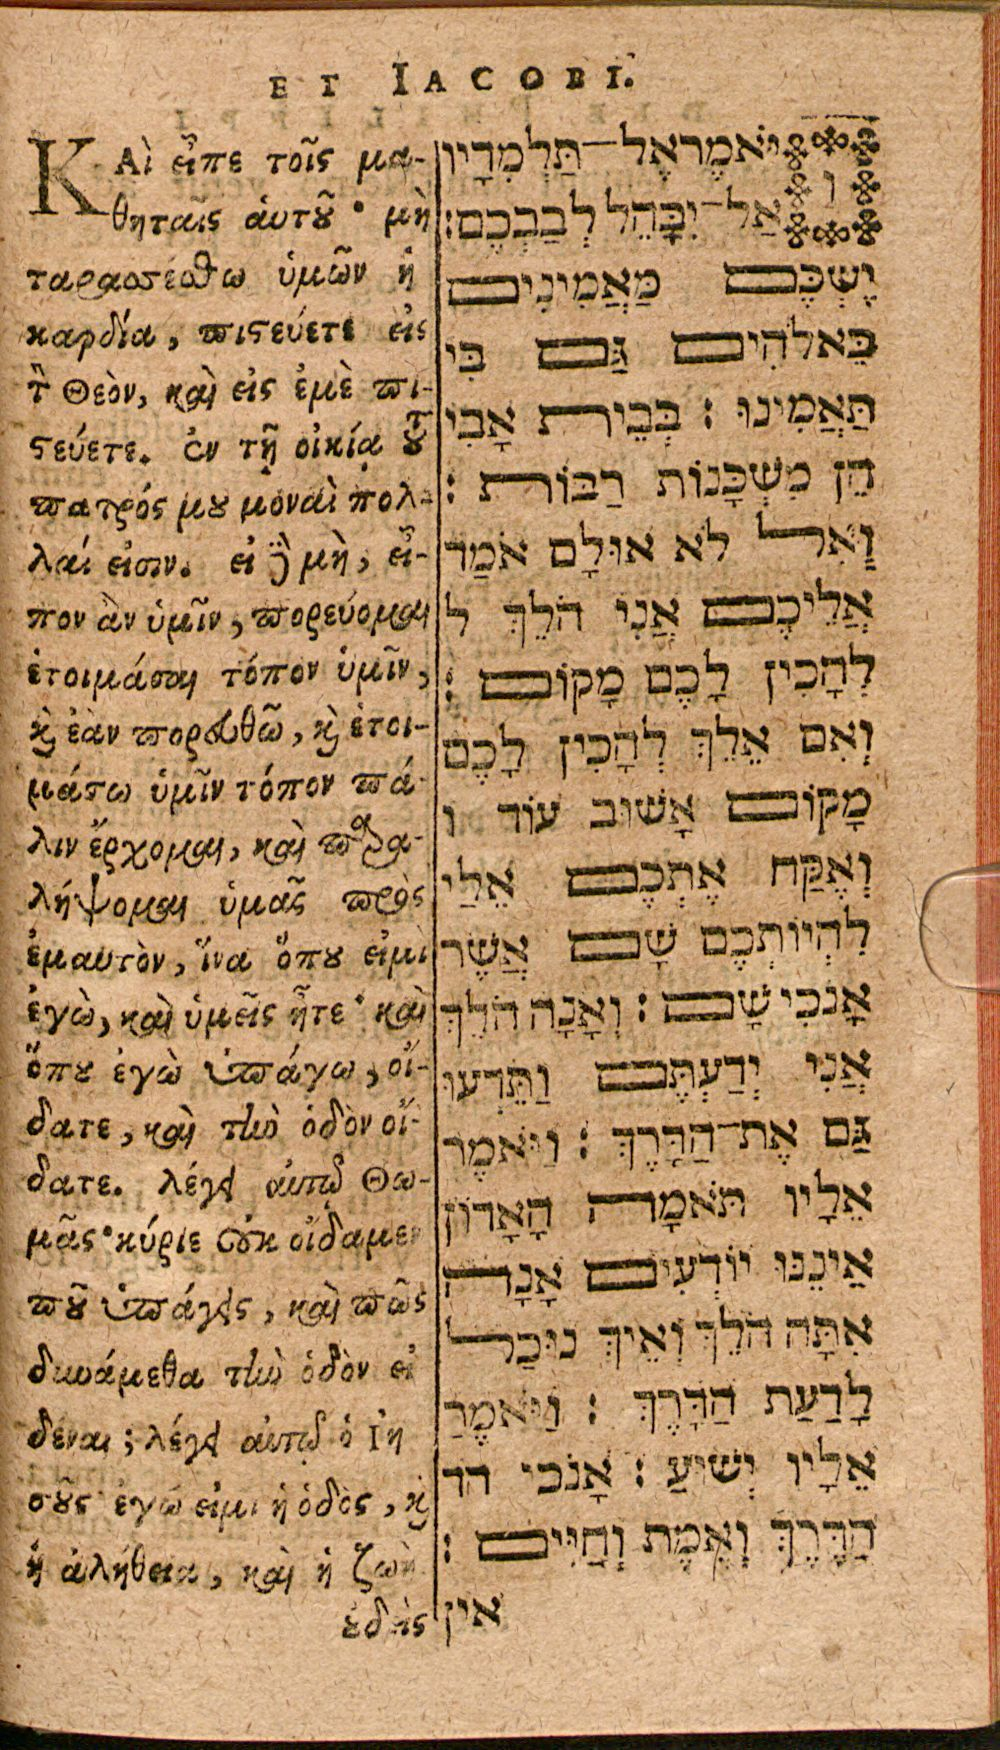 ET IACOBI.
ΚΑὶ εἶπε τοῖς μα-
θηταῖς ἁυτοῦ· μὴ
ταρασσέσθω ὑμῶν ἡ
καρδία, πιστεύετε εἰς
τὸν Θεὸν, καὶ εἰς ἐμὲ πι-
στεύετε. ἐν τῇ οἰκίᾳ τοῦ
πατρός μου μοναὶ πολ-
λαί εἰσιν. εἰ δὲ μὴ, εἶ-
πον ἂν ὑμῖν, πορεύομαι
ἑτοιμάσαι τόπον ὑμῖν,
καὶ ἐὰν πορευθῶ, καὶ ἑτοι-
μάσω ὑμῖν τόπον πά-
λιν ἔρχομαι, καὶ παρα-
λήψομαι ὑμᾶς πρὸς
ἐμαυτὸν, ἵνα ὅπου εἰμὶ
ἐγὼ, καὶ ὑμεῖς ἦτε· καὶ
ὅπου ἐγὼ ὑπάγω, οἴ-
δατε, καὶ τὴν ὁδὸν οἴ-
δατε. λέγει αὐτῷ Θω-
μᾶς· κύριε οὐκ οἴδαμεν
ποῦ ὑπάγεις, καὶ πῶς
δυνάμεθα τὴν ὁδὸν εἰ
δέναι; λέγει αὐτῷ ὁ Ἰη
σοῦς ἐγώ εἰμι ἡ ὁδὸς, καὶ
ἡ ἀλήθεια, καὶ ἡ ζωὴ
οὐδεὶς
ויֹּאמֶר אֶל־תַּלְמִדָיו
אַל־יִבָּהֵל לְבַבְכֶם:
יֶשְׁכֶּם מַּאֲמִינִים
בֵּאלֹהִים גַּם בִּי
תַּאֲמִינוּ : בְּבֵית אָבִי
הֵן מִשְׁכָּנוֹת רַבּוֹת :
וָאִל לֹא אוּלָם אֹמַר
אֲלֵיכֶם אֲנִי הֹלֵךְ ל
לְהָכִין לָכֶם מָקוֹם :
וְאִם אֵלֵךְ לְהָכִין לָכֶם
מָקוֹם אָשׁוּב עוֹד ו
וְאֶקַּח אֶתְכֶם אֵלַי
לִהְיוֹתְכֶם שָׁם אֲשֶׁר
אָנֹכִי שָׁם : וְאָנָה הֹלֵךְ
אֲנִי יְדַעְתֶּם וַתֵּדְעוּ
גַּם אֶת־הַדָּרֶךְ : וַיֹּאמֶר
אֵלָיו תֹּאמָה הָאָדוֹן
אֵינֵנוּ יוֹדְעִים אָנָה
אִתָּה הֹלֵךְ וְאֵיךְ נוּכַל
לָדַעַת הַדָּרֶךְ : וַיֹּאמֶר
אֵלָיו יְשׁוּעַ : אָנֹכִי הד
הַדֶּרֶךְ וְאֱמֶת וְחַיִּים :
אין